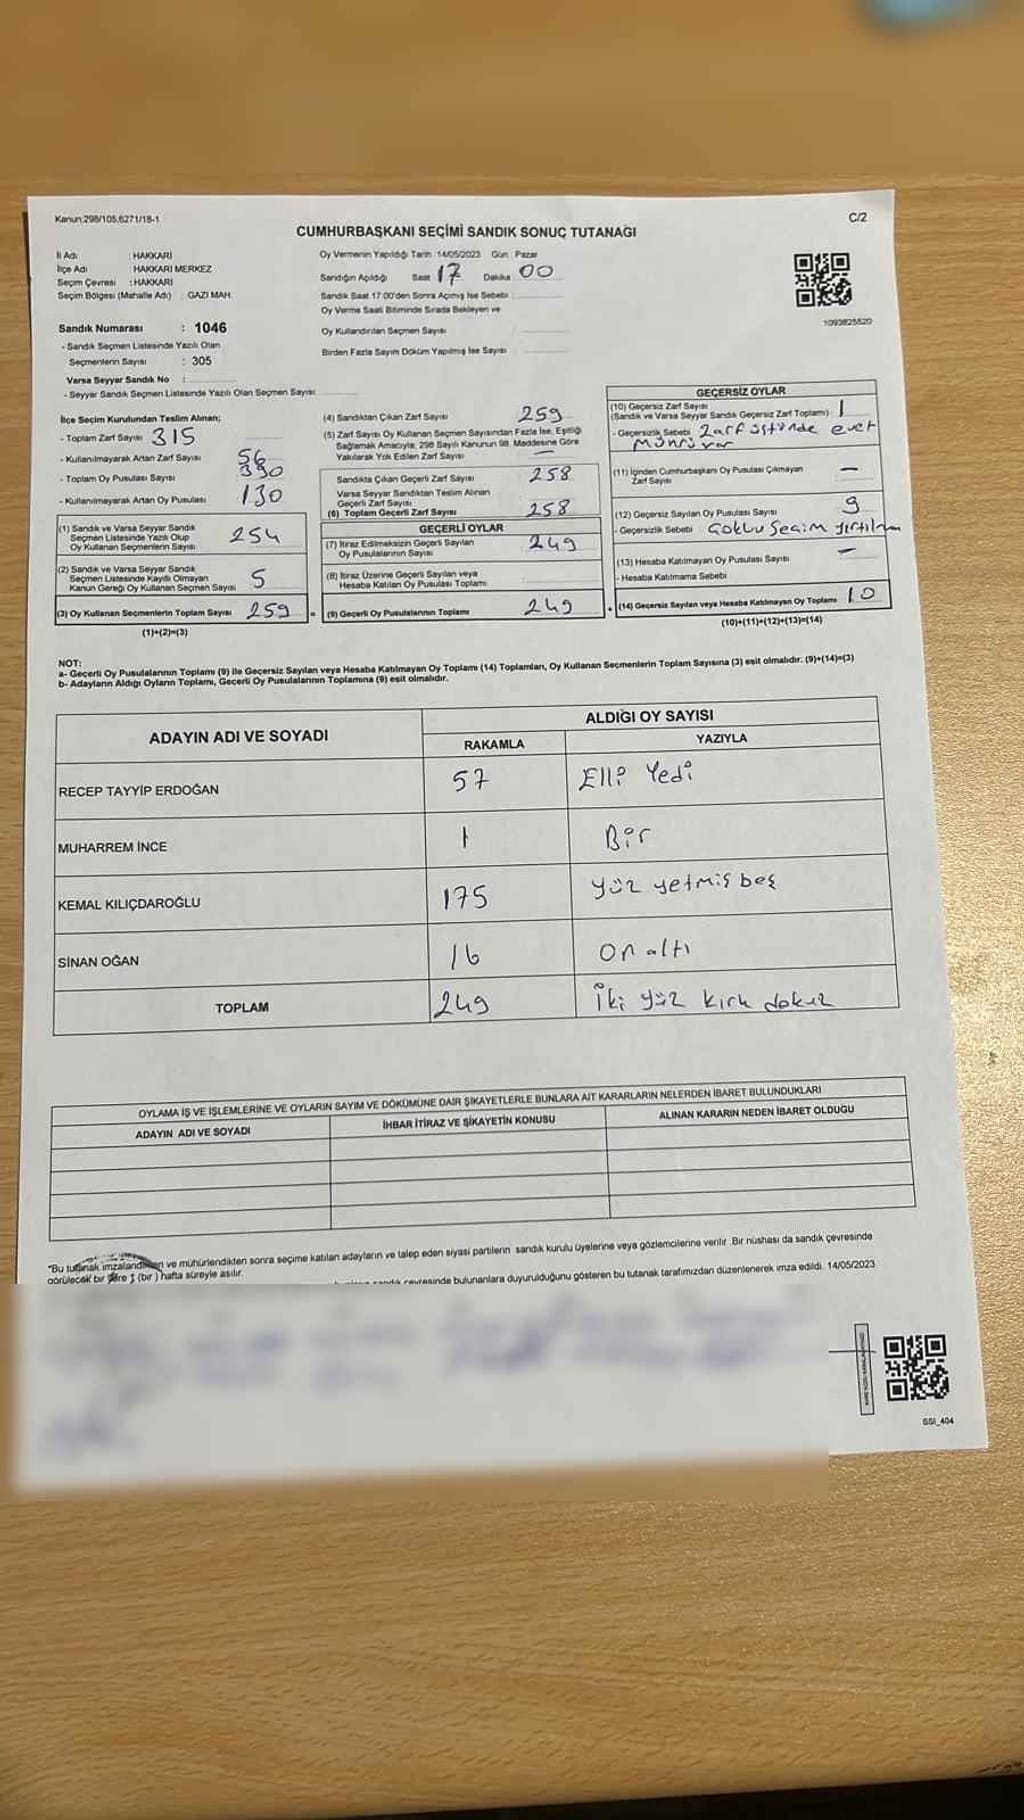 Kanun:298/105,6271/18-1
C/2
CUMHURBAŞKANI SEÇİMİ SANDIK SONUÇ TUTANAĞI
İl Adı : HAKKARİ
İlçe Adı HAKKARİ MERKEZ
Seçim Çevresi : HAKKARİ
Seçim Bölgesi (Mahalle Adı) : GAZİ MAH.
Oy Vermenin Yapıldığı Tarih : 14/05/2023 Gün : Pazar
Sandığın Açıldığı Saat 17 Dakika 00
Sandık Saat 17:00'den Sonra Açımış İse Sebebi
Oy Verme Saati Bitiminde Sırada Bekleyen ve
Oy Kullandırılan Seçmen Sayısı
Birden Fazla Sayım Döküm Yapılmış İse Sayısı
1093825520
Sandık Numarası : 1046
- Sandık Seçmen Listesinde Yazılı Olan
Seçmenlerin Sayısı : 305
Varsa Seyyar Sandık No :
- Seyyar Sandık Seçmen Listesinde Yazılı Olan Seçmen Sayısı
İlçe Seçim Kurulundan Teslim Alınan;
- Toplam Zarf Sayısı 315
- Kullanılmayarak Artan Zarf Sayısı 56
- Toplam Oy Pusulası Sayısı
- Kullanılmayarak Artan Oy Pusulası 130
(1) Sandık ve Varsa Seyyar Sandık
Seçmen Listesinde Yazılı Olup
Oy Kullanan Seçmenlerin Sayısı 254
(2) Sandık ve Varsa Seyyar Sandık
Seçmen Listesinde Kayıtlı Olmayan
Kanun Gereği Oy Kullanan Seçmen Sayısı 5
(3) Oy Kullanan Seçmenlerin Toplam Sayısı 259 =
(1)+(2)=(3)
(4) Sandıktan Çıkan Zarf Sayısı 259
(5) Zarf Sayısı Oy Kullanan Seçmen Sayısından Fazla İse, Eşitliği
Sağlamak Amacıyla; 298 Sayılı Kanunun 98. Maddesine Göre
Yakılarak Yok Edilen Zarf Sayısı —
Sandıkta Çıkan Geçerli Zarf Sayısı 258
Varsa Seyyar Sandıktan Teslim Alınan
Geçerli Zarf Sayısı
(6) Toplam Geçerli Zarf Sayısı 258
GEÇERLİ OYLAR
(7) İtiraz Edilmeksizin Geçerli Sayılan
Oy Pusulalarının Sayısı 249
(8) İtiraz Üzerine Geçerli Sayılan veya
Hesaba Katılan Oy Pusulası Toplamı
(9) Geçerli Oy Pusulalarının Toplamı 249 +
GEÇERSİZ OYLAR
(10) Geçersiz Zarf Sayısı
(Sandık ve Varsa Seyyar Sandık Geçersiz Zarf Toplamı) 1
- Geçersizlik Sebebi Zarf üstünde evet
mührü var
(11) İçinden Cumhurbaşkanı Oy Pusulası Çıkmayan
Zarf Sayısı —
(12) Geçersiz Sayılan Oy Pusulası Sayısı 9
- Geçersizlik Sebebi Çoklu Seçim yırtılma
(13) Hesaba Katılmayan Oy Pusulası Sayısı —
- Hesaba Katılmama Sebebi
(14) Geçersiz Sayılan veya Hesaba Katılmayan Oy Toplamı 10
(10)+(11)+(12)+(13)=(14)
NOT:
a- Geçerli Oy Pusulalarının Toplamı (9) ile Geçersiz Sayılan veya Hesaba Katılmayan Oy Toplamı (14) Toplamları, Oy Kullanan Seçmenlerin Toplam Sayısına (3) eşit olmalıdır. (9)+(14)=(3)
b- Adayların Aldığı Oyların Toplamı, Geçerli Oy Pusulalarının Toplamına (9) eşit olmalıdır.
ADAYIN ADI VE SOYADI
ALDIĞI OY SAYISI
RAKAMLA YAZIYLA
RECEP TAYYİP ERDOĞAN 57 Elli Yedi
MUHARREM İNCE 1 Bir
KEMAL KILIÇDAROĞLU 175 yüz yetmiş beş
SİNAN OĞAN 16 on altı
TOPLAM 249 İki yüz kırk dokuz
OYLAMA İŞ VE İŞLEMLERİNE VE OYLARIN SAYIM VE DÖKÜMÜNE DAİR ŞİKAYETLERLE BUNLARA AİT KARARLARIN NELERDEN İBARET BULUNDUKLARI
ADAYIN ADI VE SOYADI İHBAR İTİRAZ VE ŞİKAYETİN KONUSU ALINAN KARARIN NEDEN İBARET OLDUĞU
*Bu tutanak imzalandıktan ve mühürlendikten sonra seçime katılan adayların ve talep eden siyasi partilerin sandık kurulu üyelerine veya gözlemcilerine verilir. Bir nüshası da sandık çevresinde
görülecek bir yere 1 (bir) hafta süreyle asılır.
sandık çevresinde bulunanlara duyurulduğunu gösteren bu tutanak tarafımızdan düzenlenerek imza edildi. 14/05/2023
SSI_404